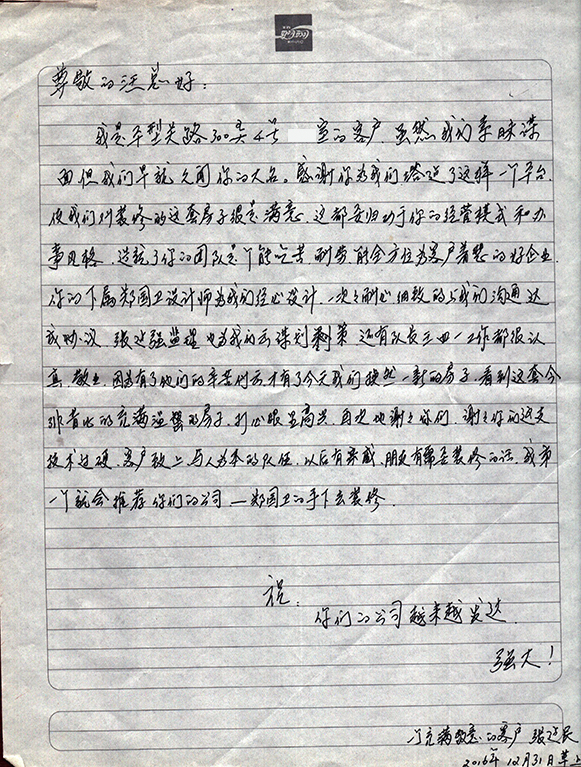 尊敬的汪总好:
我是平型关路300弄4号 室的客户.虽然我们素昧谋
面但我们早就久闻你的大名。感谢你为我们搭造了这样一个平台.
使我们所装修的这套房子很是满意.这都要归功于你的经营模式和办
事风格.造就了你的团队是个能吃苦.耐劳.能全方位为客户着想的好企业.
你的下属郑国卫设计师为我们经心设计.一次次耐心细致的与我们沟通达
成协议.张 强监理也为我们出谋划策 还有队长王四一工作都很认
真.敬业.因为有了他们的辛苦付出才有了今天我们焕然一新的房子.看到这套今
非昔比的充满温馨的房子.打心眼里高兴.自此也谢谢你们.谢谢你们这支
技术过硬.客户致上.与人为本的队伍.以后有亲戚.朋友有需要装修的话 我第
一个就会推荐你们的公司—郑国卫的手下去装修.
祝:
你们的公司越来越发达.
强大!
个充满敬意的客户 张 民
2016年12月31日草上